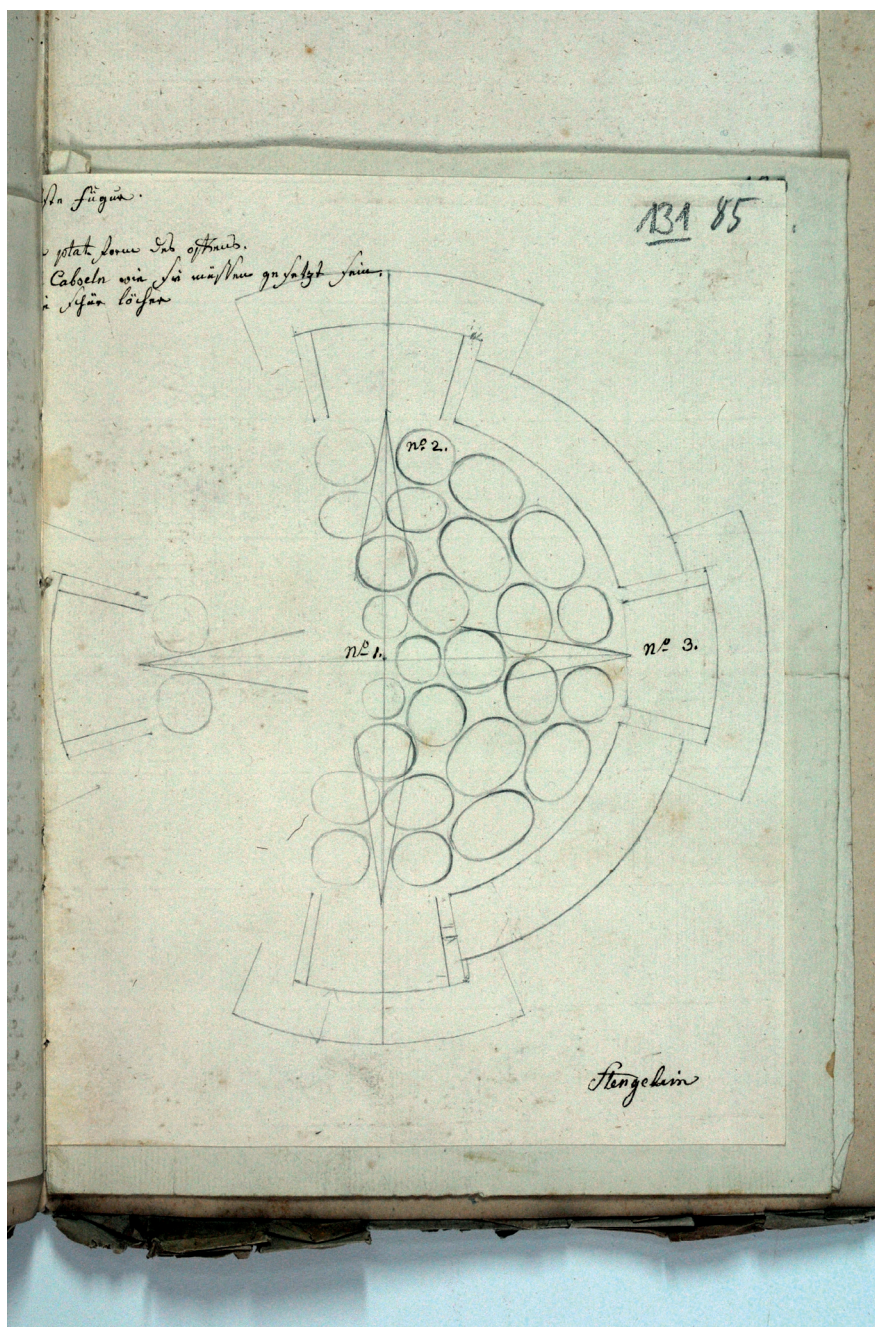 ste Fügur.
131 85
plat form des offens.
Cabseln wie sie müssen gesetzt sein.
schür löcher
nº 2.
nº 1.
nº 3.
Stengelein